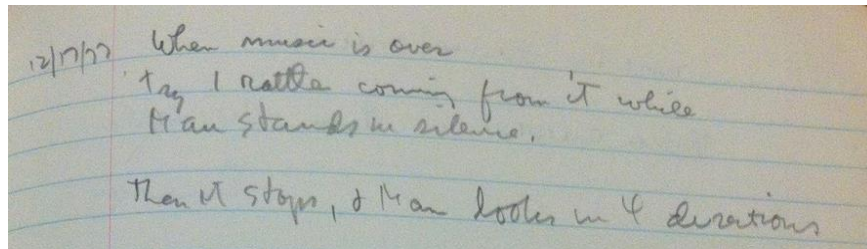 12/17/77 When music is over
try 1 rattle coming from it while
Man stands in silence.
Then it stops, & Man looks in 4 directions